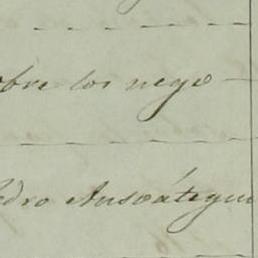 obre los nego
edro Ansoátegui